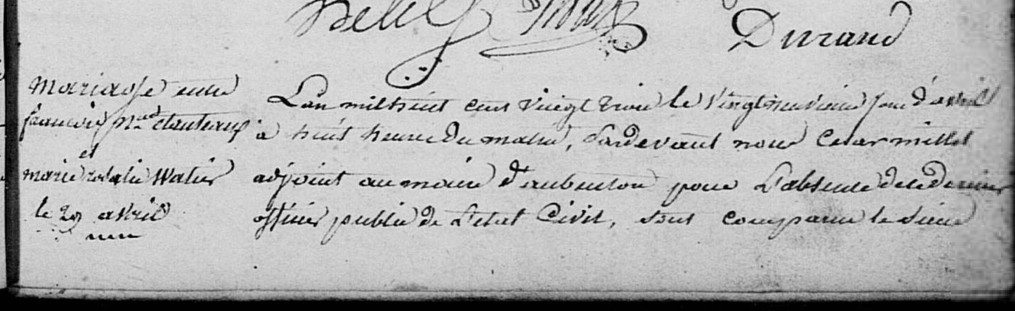 Durand
mariage entre
françois n.las
et
marie rosalie Watier
le 29 avril
L'an mil huit cent vingt trois le vingt neuvieme jour d'avril
a huit heure du matin, Pardevant nous Cesar millet
adjoint au maire d'aubenton pour L'absence de ce dernier
officier public de L'etat Civil, sont comparu le sieur